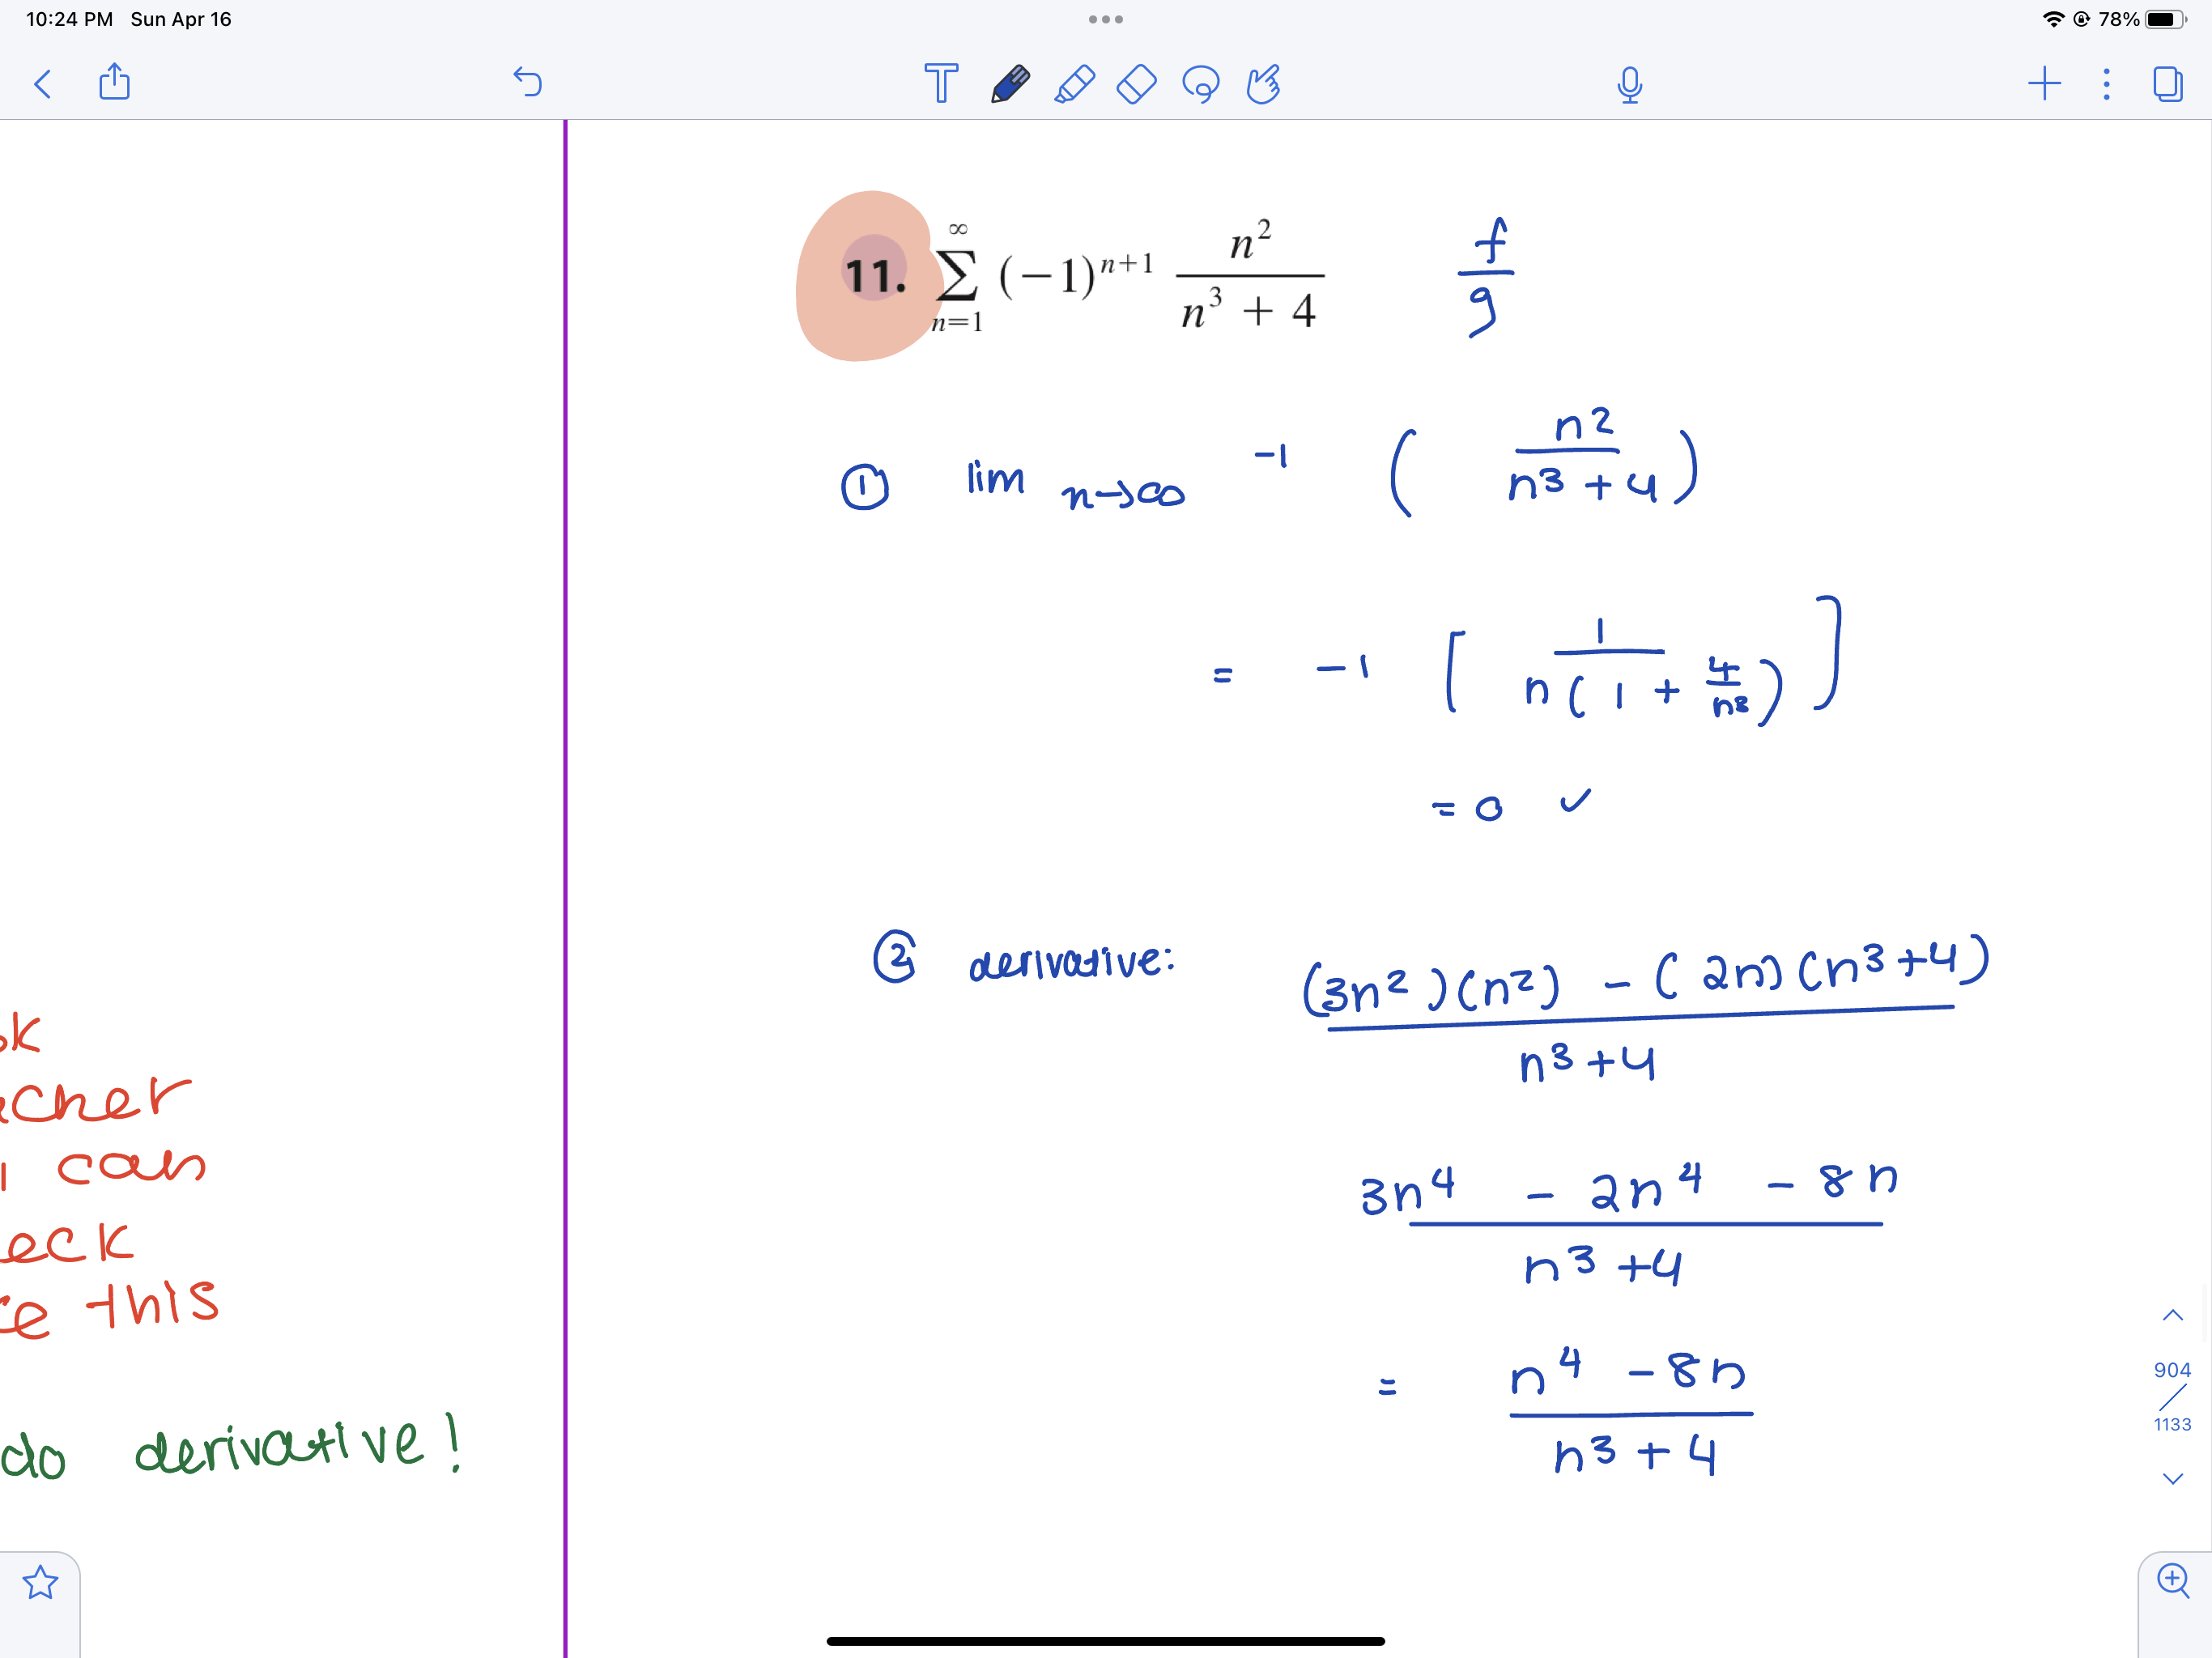 10:24 PM Sun Apr 16
78%
T
11. ∞ ∑ n=1 (−1)^{n+1} n^2 / (n^3 + 4)
f / g
① lim n→∞ -1 ( n2 / (n3 + 4) )
= -1 [ 1 / (n ( 1 + 4/n3 )) ]
= 0 ✓
② derivative: ((3n2)(n2) - (2n)(n3+4)) / (n3+4)
(3n4 - 2n4 - 8n) / (n3+4)
= (n4 - 8n) / (n3+4)
can
this
do derivative!
904 / 1133